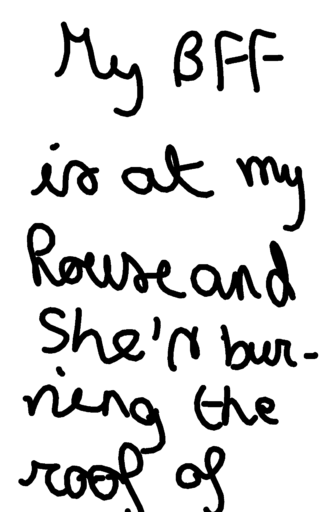 My BFF
is at my
house and
She's bur-
ning the
roof of